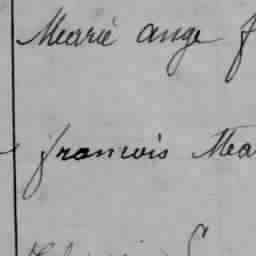 Marie ange f
francois Mea